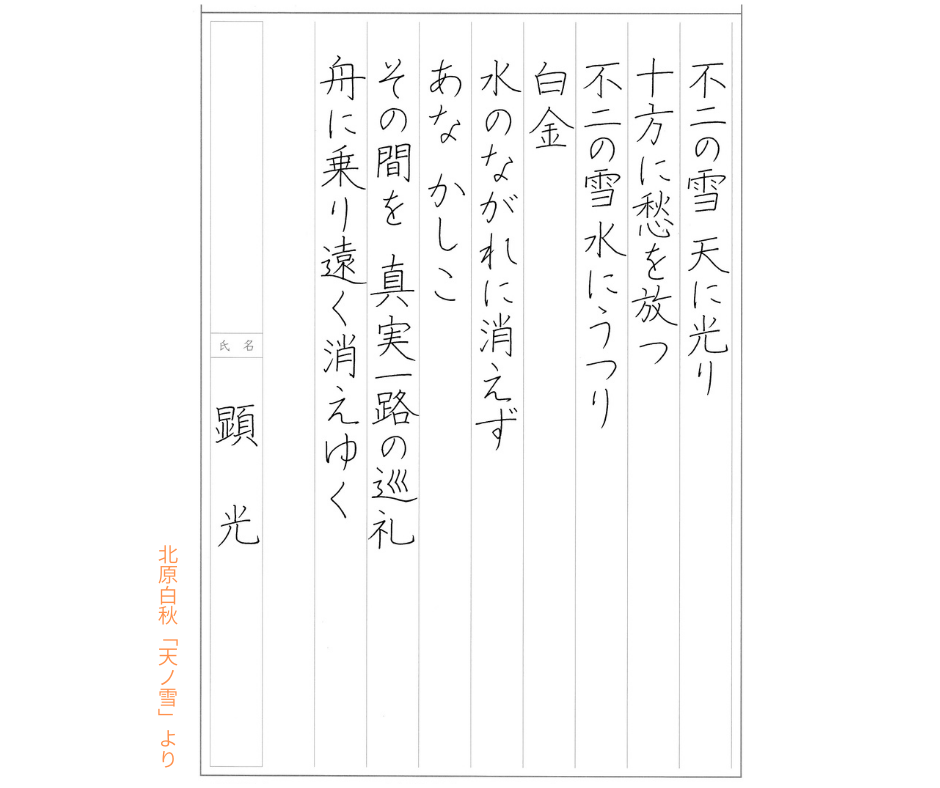 不二の雪 天に光り
十方に愁を放つ
不二の雪水にうつり
白金
水のながれに消えず
あな かしこ
その間を 真実一路の巡礼
舟に乗り遠く消えゆく
氏名
顕光
北原白秋「天ノ雪」より